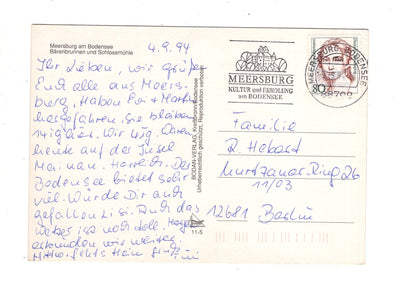 Meersburg am Bodensee
Bärenbrunnen und Schlossmühle
4.9.94
Ihr Lieben, wir grüßen
Euch alle aus Meers-
burg. Haben Eva & Martin
hergefahren, sie bleiben
Wir
heute auf der Insel
Mainau. Herrlich. Der
Bodensee bietet sehr
viel. Würde Dir auch
gefallen Auch das
Wetter ist noch toll. Morgen
wir weiter.
BODAN-VERLAG, Kreuzlingen/Bodensee
Urheberrechtlich geschützt, Reproduktion verboten
11-5
MEERSBURG
KULTUR und ERHOLUNG
am BODENSEE
MEERSBURG, BODENSEE
80
Familie
R. Hebest
Murtzaner Ring 26
11/03
12681 Berlin